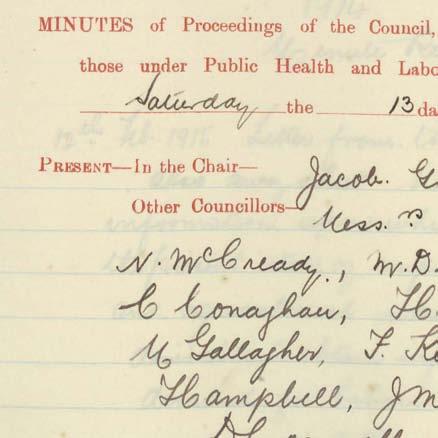 MINUTES of Proceedings of the Council,
those under Public Health and Labo
Saturday the 13 da
PRESENT—In the Chair—
Jacob. G
Other Councillors—
Mess.rs
N. McCready., M.D.
C Conaghan, H
M Gallagher, F. Ke
Hampbell, J M